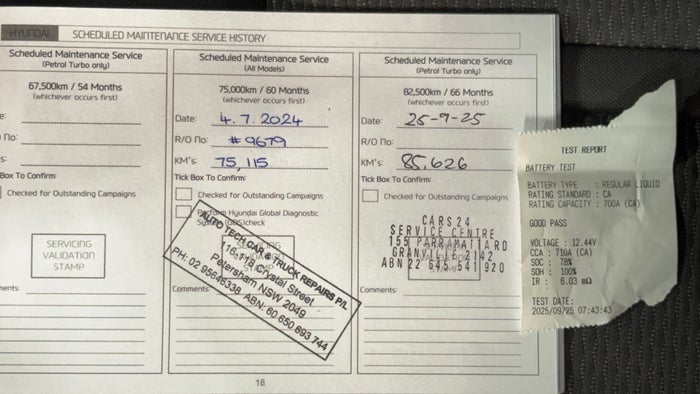 HYUNDAI SCHEDULED MAINTENANCE SERVICE HISTORY
Scheduled Maintenance Service
(Petrol Turbo only)
67,500km / 54 Months
(whichever occurs first)
No:
Box To Confirm:
Checked for Outstanding Campaigns
SERVICING
VALIDATION
STAMP
Scheduled Maintenance Service
(All Models)
75,000km / 60 Months
(whichever occurs first)
Date: 4.7.2024
R/O No: #9679
KM's: 75,115
Tick Box To Confirm:
Checked for Outstanding Campaigns
Hyundai Global Diagnostic
check
AUTO TECH CAR & TRUCK REPAIRS P/L
116-118 Crystal Street
Petersham NSW 2049
PH: 02 95646338 ABN: 80 650 693 744
Comments
18
Scheduled Maintenance Service
(Petrol Turbo only)
82,500km / 66 Months
(whichever occurs first)
Date: 25-9-25
R/O No:
KM's: 85,626
Tick Box To Confirm:
Checked for Outstanding Campaigns
CARS24
SERVICE CENTRE
155 PARRAMATTA RD
GRANVILLE 2142
ABN 22 645 541 920
Comments:
TEST REPORT
BATTERY TEST
BATTERY TYPE : REGULAR LIQUID
RATING STANDARD : CA
RATING CAPACITY : 700A (CA)
GOOD PASS
VOLTAGE : 12.44V
CCA : 710A (CA)
SOC : 78%
SOH : 100%
IR : 6.03 mΩ
TEST DATE:
2025/09/25 07:43:43